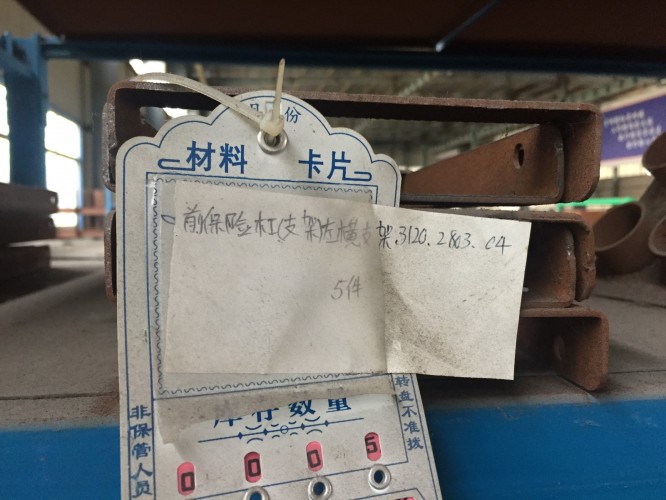 材料 卡片
前保险杠(支架)左横支架.3120.2803.04
5件
库存数量
非保管人员
转盘不准拨
0 0 0 5